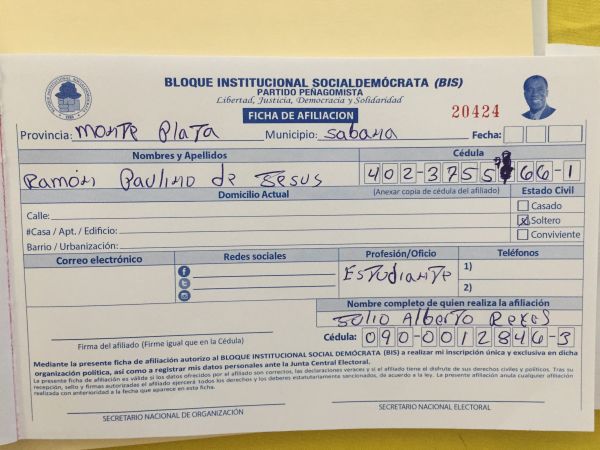 BLOQUE INSTITUCIONAL SOCIALDEMÓCRATA (BIS)
PARTIDO PEÑAGOMISTA
Libertad, Justicia, Democracia y Solidaridad
FICHA DE AFILIACION
20424
Provincia: Monte Plata Municipio: Sabana Fecha:
Nombres y Apellidos Cédula
Ramón Paulino de Jesus 402-3755 66-1
Domicilio Actual (Anexar copia de cédula del afiliado) Estado Civil
Calle: Casado
#Casa / Apt. / Edificio: Soltero
Barrio / Urbanización: Conviviente
Correo electrónico Redes sociales Profesión/Oficio Teléfonos
Estudiante 1)
2)
Nombre completo de quien realiza la afiliación
Julio Alberto Reyes
Firma del afiliado (Firme igual que en la Cédula) Cédula: 090-0012846-3
Mediante la presente ficha de afiliación autorizo al BLOQUE INSTITUCIONAL SOCIAL DEMÓCRATA (BIS) a realizar mi inscripción única y exclusiva en dicha
organización política, así como a registrar mis datos personales ante la Junta Central Electoral.
La presente ficha de afiliación es válida si los datos ofrecidos por el afiliado son correctos, las declaraciones veraces y si el afiliado tiene el disfrute de sus derechos civiles y políticos. Tras su
recepción, sello y firmas autorizadas el afiliado ejercerá todos los derechos y los deberes estatutariamente sancionados, de acuerdo a la ley. La presente afiliación anula cualquier afiliación
realizada con anterioridad a la fecha que aparece en esta ficha.
SECRETARIO NACIONAL DE ORGANIZACIÓN SECRETARIO NACIONAL ELECTORAL